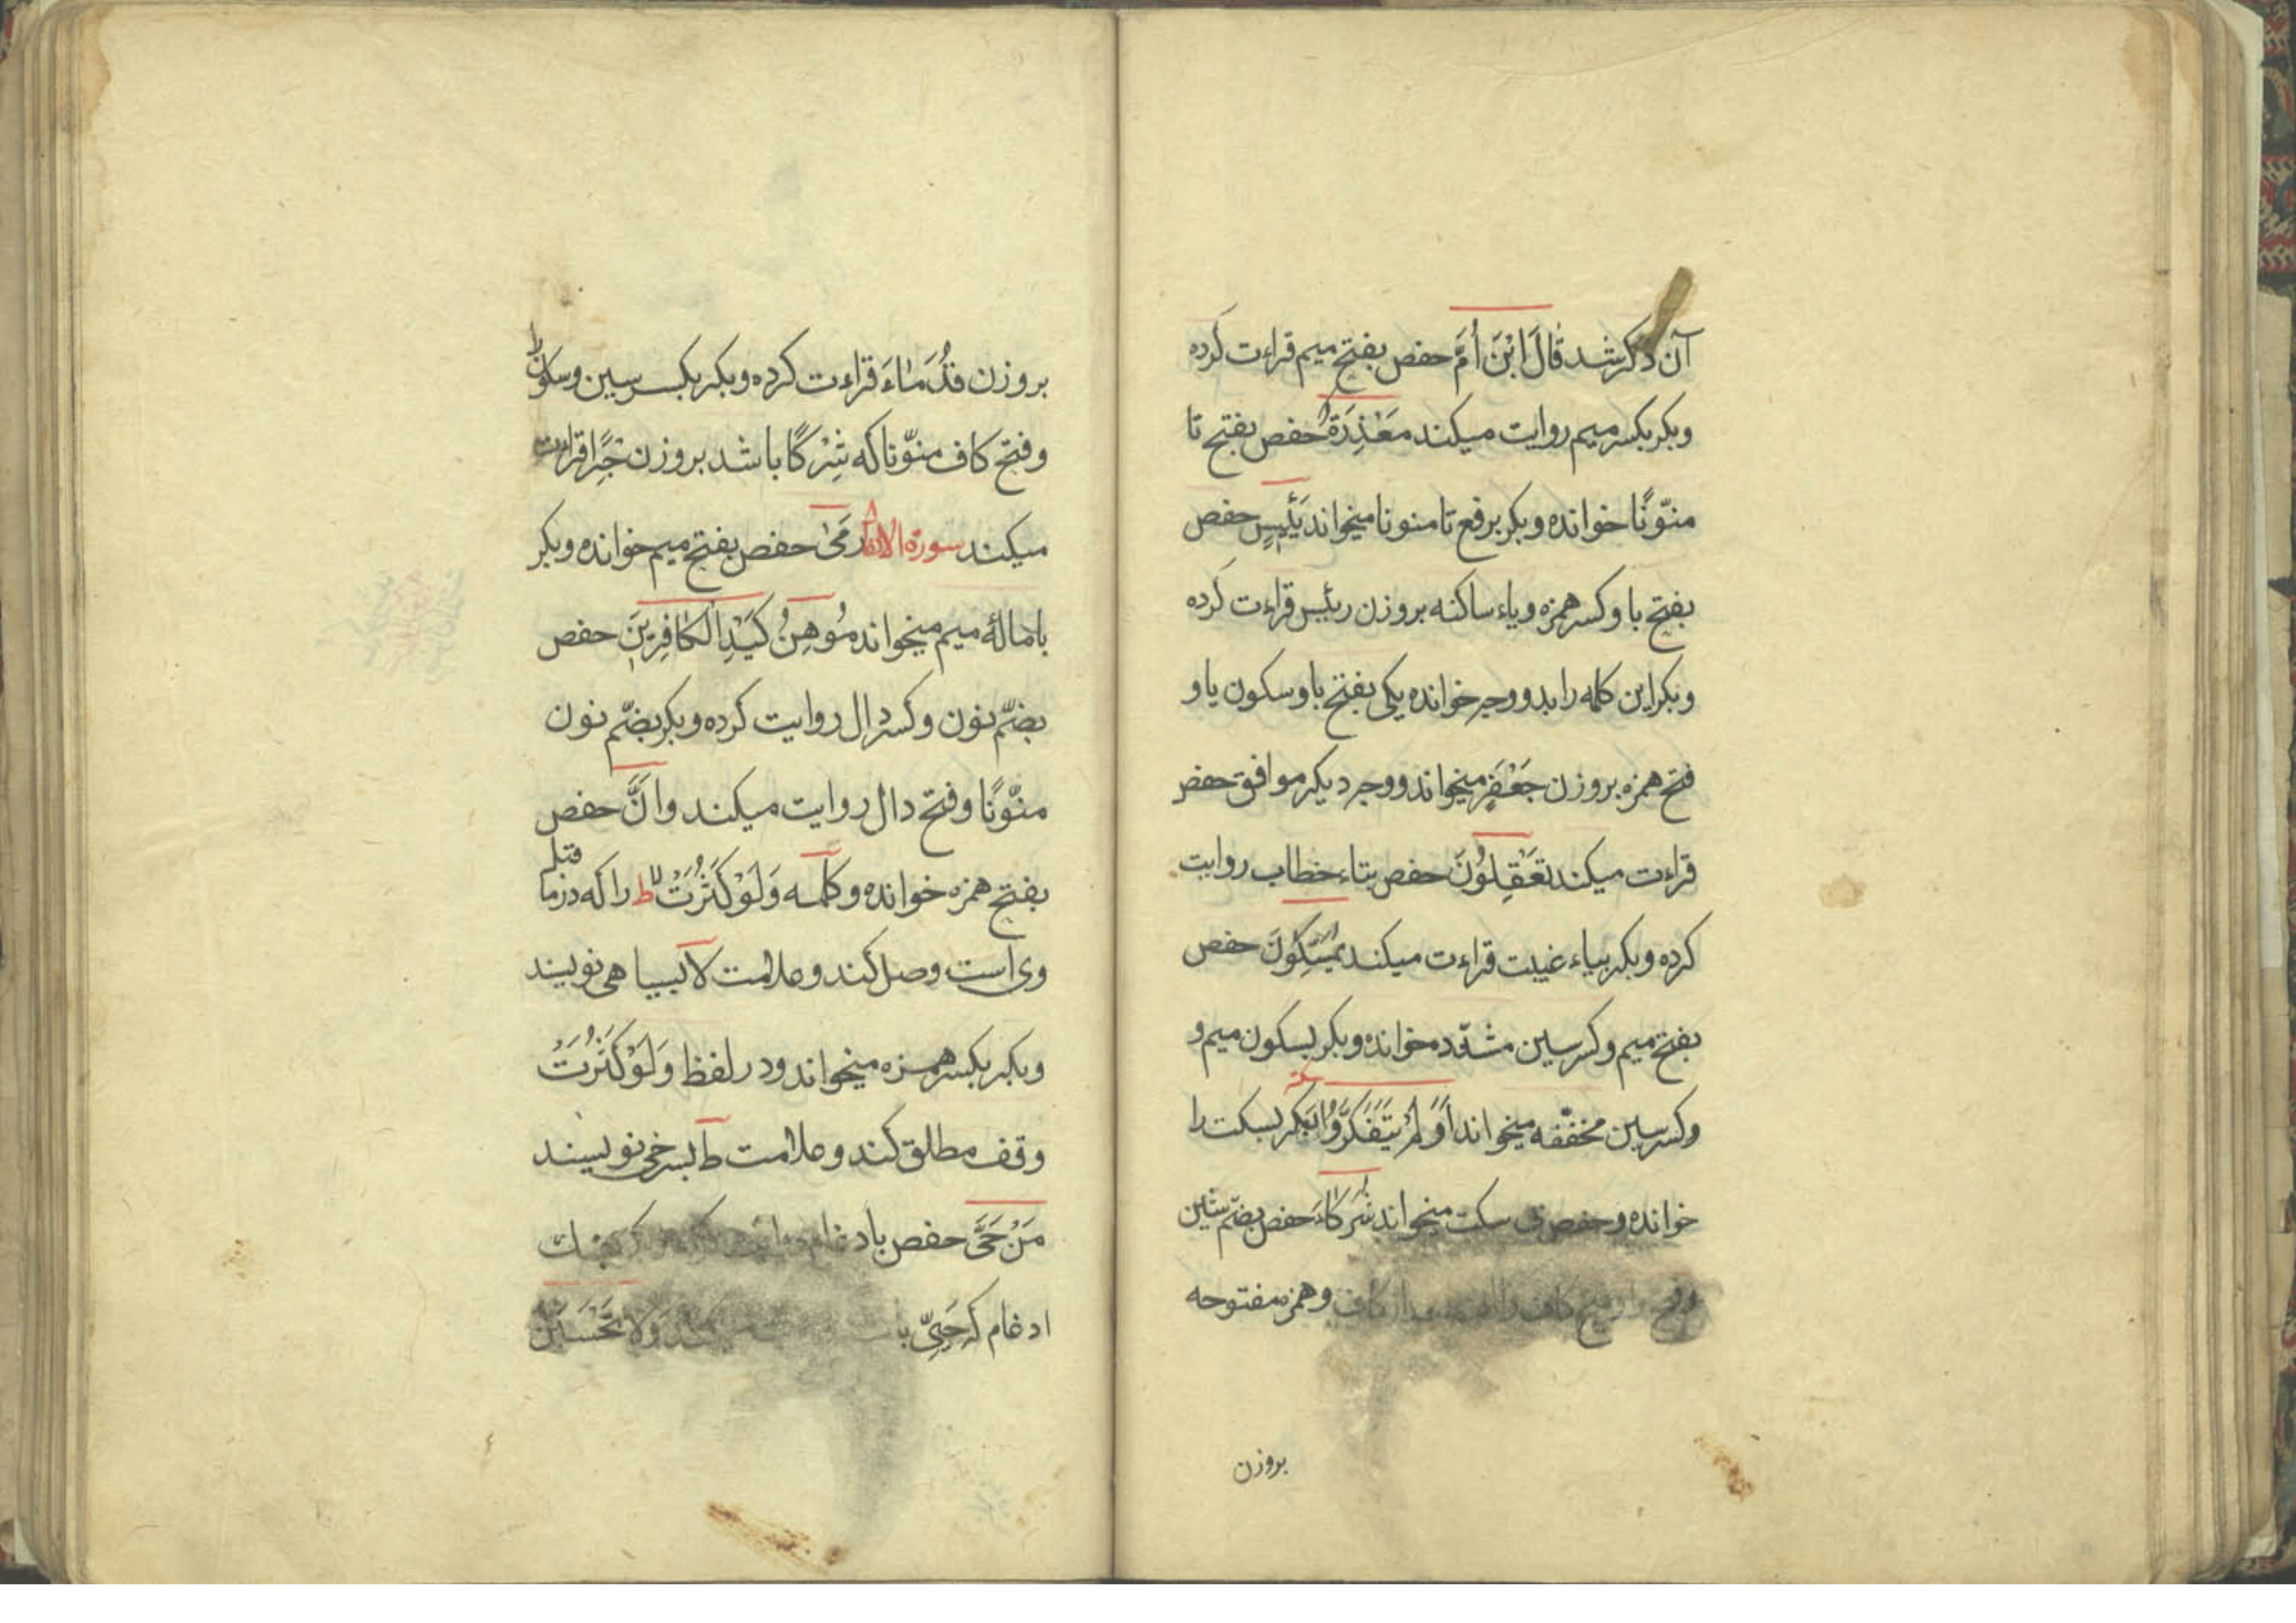 آن ذکر شد قَالَ ابْنَ أُمَّ حفص بفتح میم قراءت کرده
وبکر بکسر میم روایت میکند مَعْذِرَةً حفص بفتح تا
منوّنًا خوانده وبکر برفع تا منونا میخواند بَئِیسٍ حفص
بفتح با وکسر همزه ویاء ساکنه بروزن رئیس قراءت کرده
وبکر این کلمه را بدو وجه خوانده یکی بفتح با وسکون یا و
فتح همزه بروزن جَعْفَرٍ میخواند ووجه دیکر موافق حفص
قراءت میکند تَعْقِلُونَ حفص بتاء خطاب روایت
کرده وبکر بیاء غیبت قراءت میکند یُمَسِّکُونَ حفص
بفتح میم وکسر سین مشدّد خوانده وبکر بسکون میم و
وکسر سین مخفّفه میخواند أَوَلَمْ یَتَفَکَّرُوا بکر بسکت را
خوانده وحفص بی سکت میخواند شُرَکَاءَ حفص بضمّ شین
وفتح کاف وهمزه مفتوحه
بروزن
بروزن قُدَمَاءَ قراءت کرده وبکر بکسر سین وسکون را
وفتح کاف منوّنا که شِرْکًا باشد بروزن قراءت
میکند سورة الانفال رَمَیٰ حفص بفتح میم خوانده وبکر
بامالهٔ میم میخواند مُوهِنُ کَیْدِ الْکَافِرِینَ حفص
بضمّ نون وکسر دال روایت کرده وبکر بضمّ نون
منوّنًا وفتح دال روایت میکند وَاَنَّ حفص
بفتح همزه خوانده وکلمه وَلَوْ کَثُرَتْ لا ط را که در ما قبل
وی است وصل کند وعلامت لا بسیاهی نویسند
وبکر بکسر همزه میخواند ودر لفظ وَلَوْ کَثُرَتْ
وقف مطلق کند وعلامت ط بسرخی نویسند
مَنْ حَیَّ حفص بادغام
ادغام که حَیِیَ وَلَا تَحْسَبَنَّ